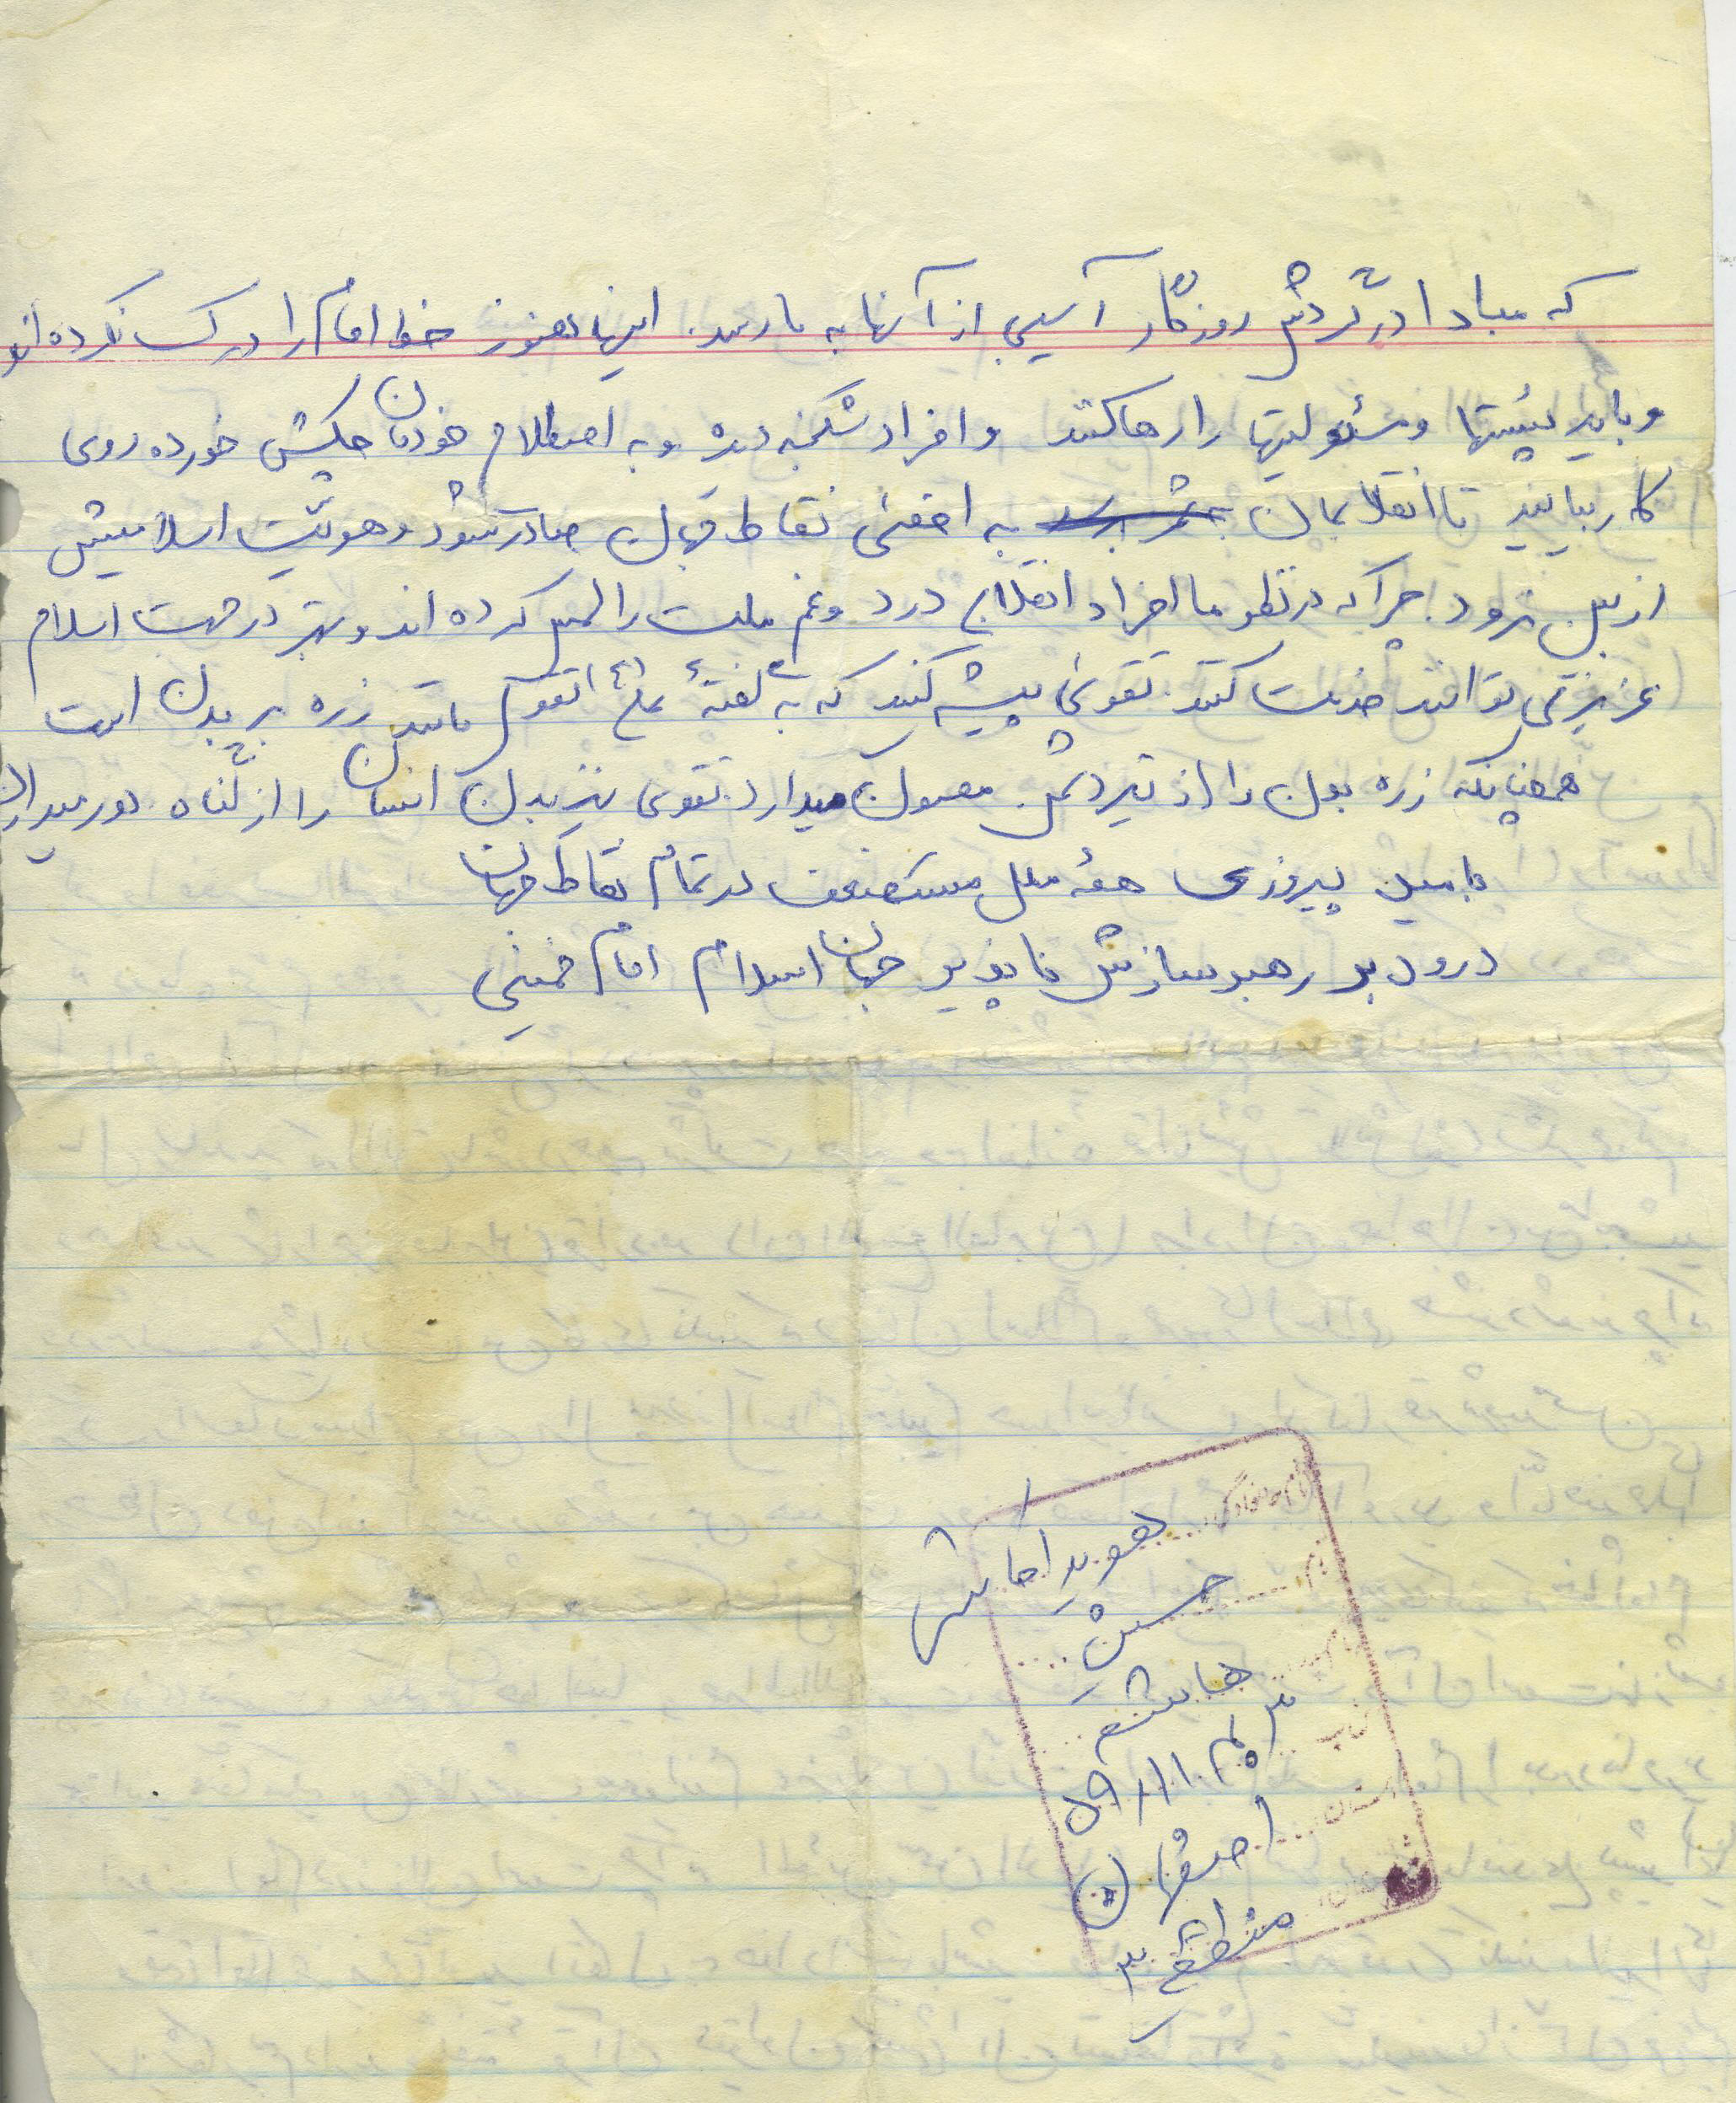 که مبادا در گردش روزگار آسیبی از آنها به ما رسد. اینها هنوز خط امام را درک نکرده اند
و باید پستها و مسئولیتها را رها کنند و افراد شکنجه دیده و به اصطلاح خودمان چکش خورده روی
کار بیایند تا انقلابمان به اقصی نقاط جهان صادر شود و هویت اسلامیش
از بین نرود. چرا که در نظر ما افراد انقلابی درد و غم ملت را لمس کرده اند و بهتر در جهت اسلام
عزیز می توانند خدمت کنند. تقوی پیشه کنید که به گفتهٔ علی تقوی مانند زره بر بدن است
همچنانکه زره بدن را از تیر دشمن مصون میدارد تقوی نیز بدن انسان را از گناه دور میدارد
بامید پیروزی همهٔ ملل مستضعف در تمام نقاط جهان
درود بر رهبر سازش ناپذیر جهان اسلام امام خمینی
نام خانوادگی هویدامنش
نام حسین
نام پدر هاشم
۵۹/۱۱/
استان اصفهان
منطقه ۳